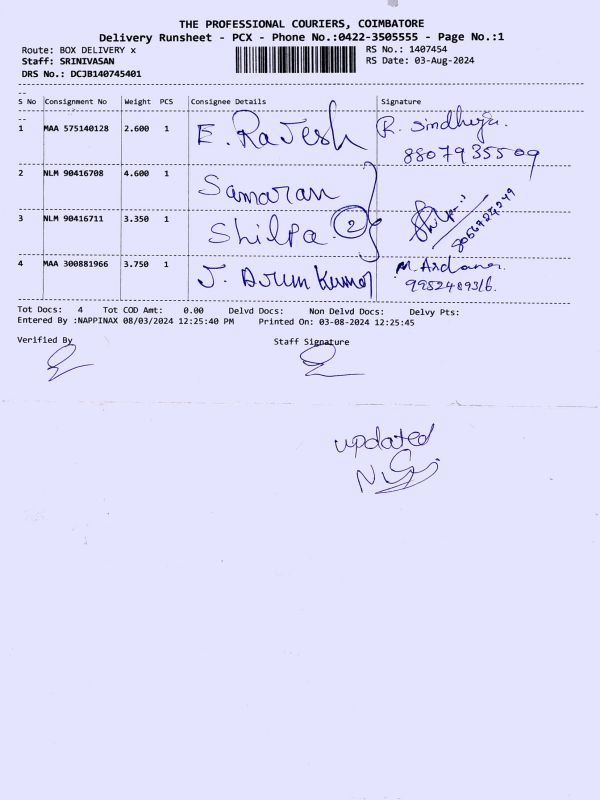 THE PROFESSIONAL COURIERS, COIMBATORE
Delivery Runsheet - PCX - Phone No.:0422-3505555 - Page No.:1
Route: BOX DELIVERY x
RS No.: 1407454
Staff: SRINIVASAN
RS Date: 03-Aug-2024
DRS No.: DCJB140745401
S No Consignment No Weight PCS Consignee Details Signature
1 MAA 575140128 2.600 1 E. Rajesh R. Sindhuja.
8807935509
2 NLM 90416708 4.600 1 Samaran
3 NLM 90416711 3.350 1 Shilpa 2
4 MAA 300881966 3.750 1 J. Arun Kumar M. Ardana.
9952489316.
Tot Docs: 4 Tot COD Amt: 0.00 Delvd Docs: Non Delvd Docs: Delvy Pts:
Entered By :NAPPINAX 08/03/2024 12:25:40 PM Printed On: 03-08-2024 12:25:45
Verified By Staff Signature
updated